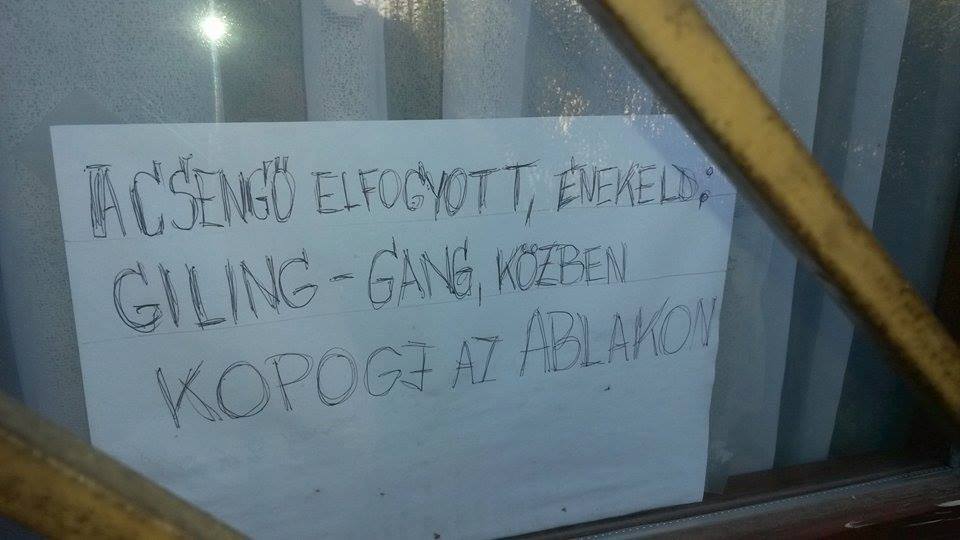 A CSENGŐ ELFOGYOTT, ÉNEKELD:
GILING-GANG, KÖZBEN
KOPOGJ AZ ABLAKON